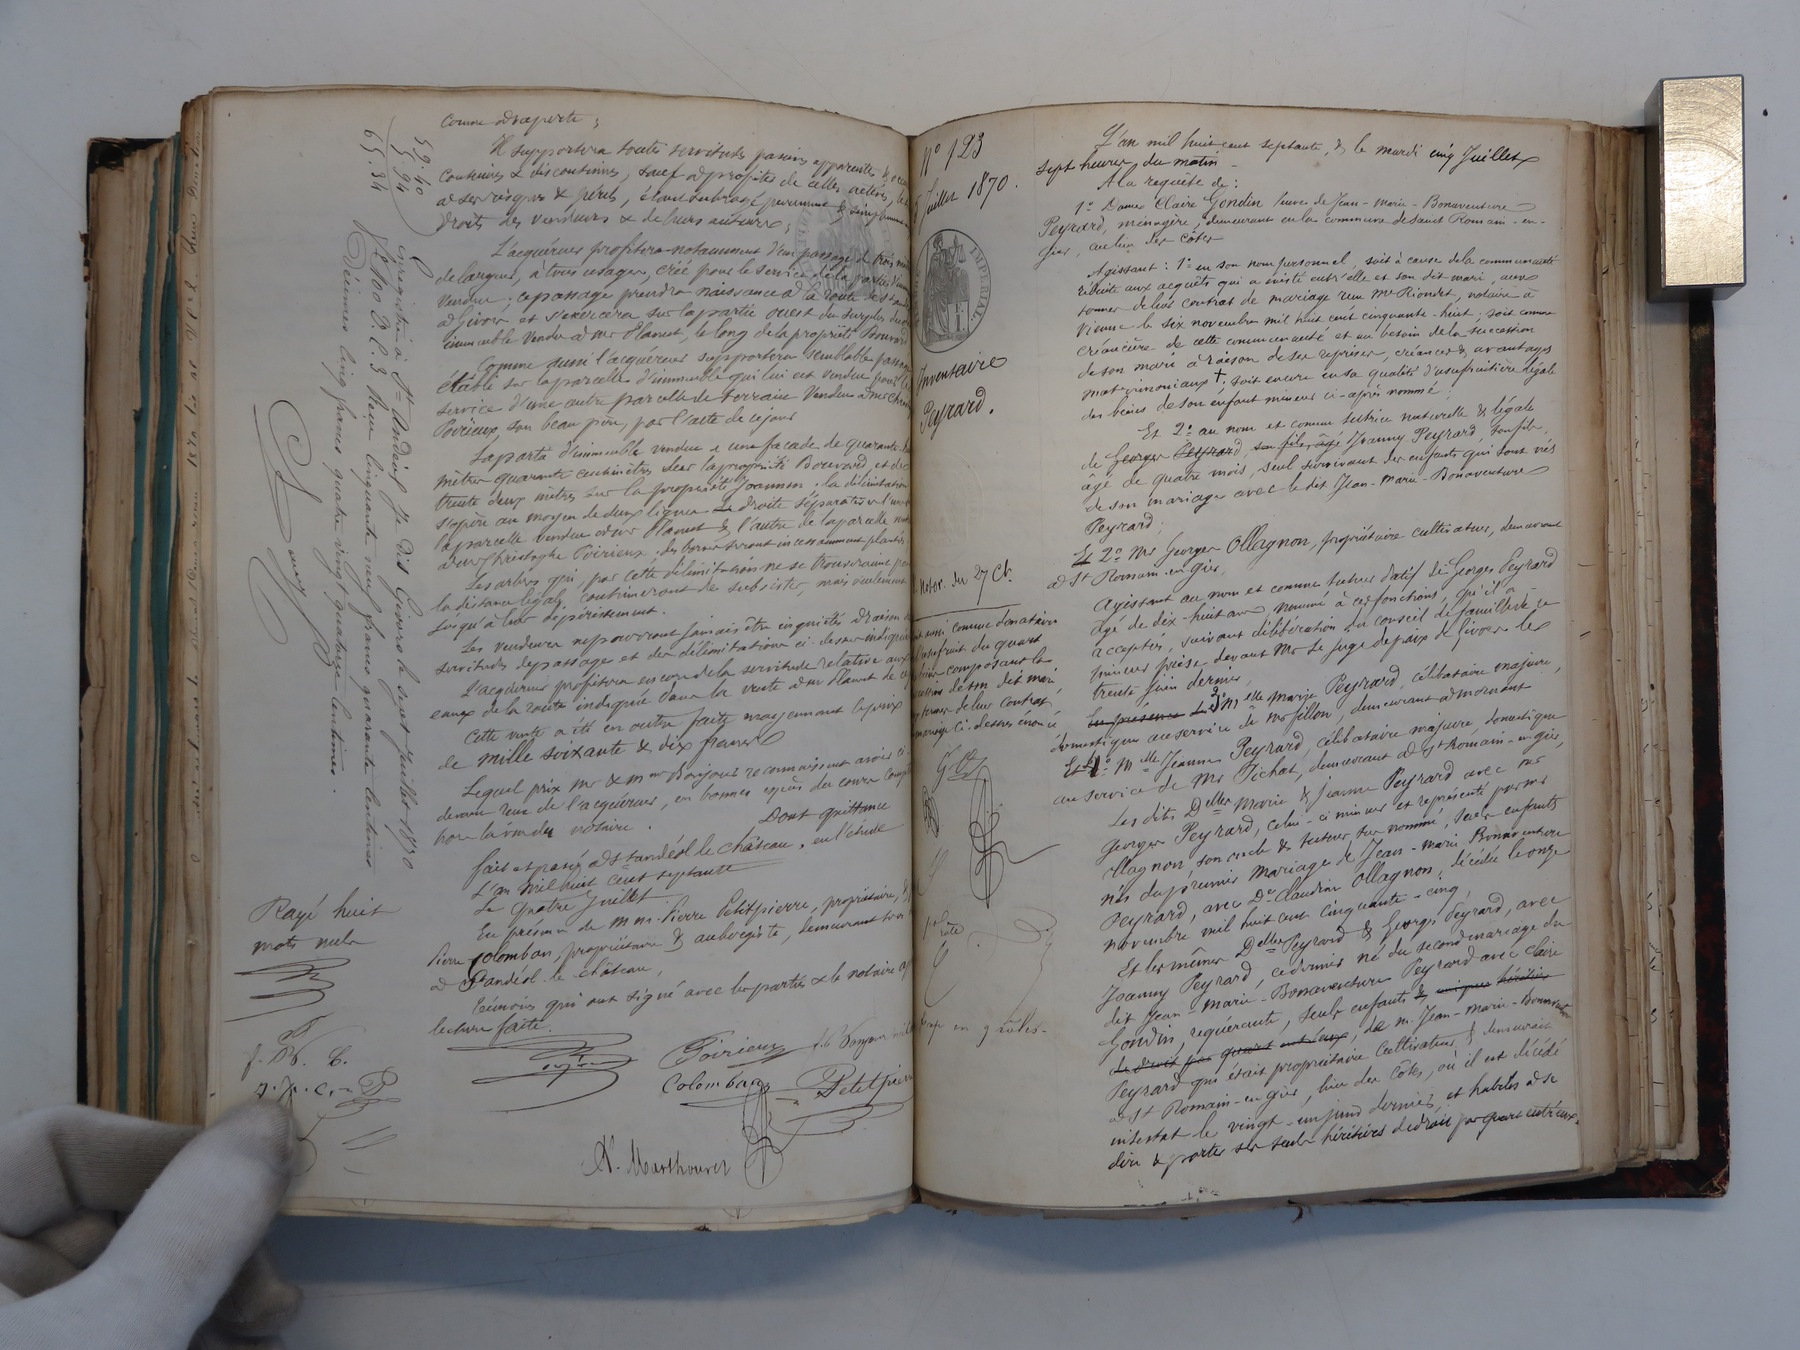 comme de raperte ;
Il supportera toutes servitudes passives apparentes &
continues & discontinues, sauf à profiter de celles actives, le
à ses risques & périls, étant subrogé purement & simplement
droits des vendeurs & de leurs auteurs ;
L'acquéreur profitera notamment d'un passage de trois
de largeur, à tous usages, créé pour le service de la partie
vendue ; ce passage prendra naissance à la route de St
à Givors et s'exercera sur la partie ouest du surplus
immeuble vendu à mr Planut, le long de la propriété Bouvard
Comme aussi l'acquéreur supportera semblable passage
établi sur la parcelle d'immeuble qui lui est vendue pour le
service d'une autre parcelle de terrain vendue à mr
Poirieux, son beau père, par l'acte de ce jour
La partie d'immeuble vendue a une façade de quarante
mètres quarante centimètres sur la propriété Bouvard, et de
trente deux mètres sur la propriété Joannon ; la délimitation
s'opère au moyen de deux lignes droites séparatives l'une
la parcelle vendue à mr Planut & l'autre de la parcelle
à mr Christophe Poirieux ; des bornes seront incessamment plantées
Les arbres qui, par cette délimitation ne se trouveraient pas
la distance légale, continueront de subsister, mais seulement
jusqu'à leur dépérissement.
Les vendeurs ne pourront jamais être inquiétés à raison
servitudes de passage et des délimitations ci-dessus indiquées
L'acquéreur profitera encore de la servitude relative aux
eaux de la route indiquée dans la vente à mr Planut de
Cette vente a été en outre faite moyennant le prix
de mille soixante & dix francs
Lequel prix mr & mme Bonjour reconnaissent avoir
devant reçu de l'acquéreur, en bonnes espèces du cours
hors la vue du notaire.
Dont quittance
fait et passé à St andéol le château, en l'étude
L'an mil huit cent septante
Le quatre juillet
En présence de mm. Pierre Petitpierre, propriétaire, &
Pierre Colomban, propriétaire & aubergiste, demeurant tous
à St andéol le château,
témoins qui ont signé avec les parties & le notaire
lecture faite.
Poirieux
Colomban
Petitpierre
A. Marthouret
59.40
5.94
65.34
Enregistré à St Andéol dit Givors le sept Juillet 1870
fo 100 Ro C. 3 Reçu cinquante neuf francs quarante centimes
Décimes cinq francs quatre vingt quatorze centimes.
Rayé huit
mots nuls
No 123
5 Juillet 1870.
IMPERIAL
Inventaire
Peyrard.
Honor. du 27 Ct.
et aussi comme donataire
l'usufruit du quart
biens composant la
succession de son dit mari
termes de leur contrat
mariage ci-dessus énoncé
1er rôle
en 9 rôles
L'an mil huit cent septante, & le mardi cinq Juillet
sept heures du matin
A la requête de :
1o Dame Claire Gondin veuve de Jean-Marie-Bonaventure
Peyrard, ménagère, demeurant en la commune de saint Romain-en-
Gier, au lieu des côtes
Agissant : 1o en son nom personnel, soit à cause de la communauté
réduite aux acquêts qui a existé entr'elle et son dit mari, aux
termes de leur contrat de mariage reçu me Riondet, notaire à
Vienne le six novembre mil huit cent cinquante-huit ; soit comme
créancière de cette communauté et au besoin de la succession
de son mari à raison de ses reprises, créances & avantages
matrimoniaux † ; soit encore en sa qualité d'usufruitière légale
des biens de son enfant mineur ci-après nommé ;
Et 2o au nom et comme tutrice naturelle & légale
de Georges Peyrard, son fils, âgé Joanny Peyrard, son fils,
âgé de quatre mois, seul survivant des enfants qui sont nés
de son mariage avec le dit Jean-Marie-Bonaventure
Peyrard ;
Et 2o Mr Georges Ollagnon, propriétaire cultivateur, demeurant
à St Romain-en-Gier,
Agissant au nom et comme tuteur datif de Georges Peyrard
âgé de dix-huit ans nommé à ces fonctions, qu'il a
acceptées, suivant délibération du conseil de famille de ce
mineur prise devant Mr le Juge de paix de Givors le
trente juin dernier,
En présence de 3o Melle Marie Peyrard, célibataire majeure,
domestique au service de Mr Gillon, demeurant à Mornant
Et 4o Melle Jeanne Peyrard, célibataire majeure, domestique
au service de Mr Pichat, demeurant à St Romain-en-Gier,
Les dits Delles Marie & Jeanne Peyrard avec mr
Georges Peyrard, celui-ci mineur et représenté par mr
Ollagnon, son oncle & tuteur sus nommé, seuls enfants
nés du premier mariage de Jean-Marie Bonaventure
Peyrard, avec De Claudine Ollagnon, décédée le onze
novembre mil huit cent cinquante-cinq,
Et les mêmes Delles Peyrard & Georges Peyrard, avec
Joanny Peyrard, ce dernier né du second mariage du
dit Jean-Marie-Bonaventure Peyrard avec Claire
Gondin, requérante, seuls enfants & uniques héritiers
de droit par quart entr'eux, de m. Jean-Marie-Bonaventure
Peyrard qui était propriétaire cultivateur & demeurait
à St Romain-en-Gier, lieu des Côtes, où il est décédé
intestat le vingt-un juin dernier, et habiles à se
dire & porter ses seuls héritiers de droit par quart entr'eux.